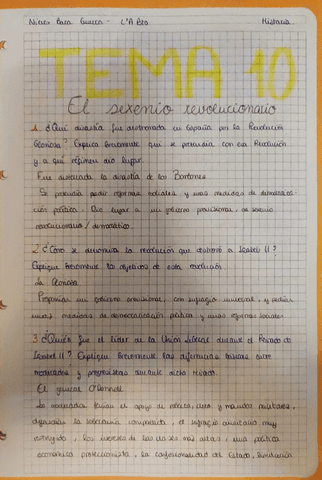 Historia
TEMA 10
El sexenio revolucionario
1. ¿Qué dinastía fue destronada en España por la Revolución
Gloriosa? Explica brevemente qué se pretendía con esa Revolución
y a qué régimen dio lugar.
Fue destronada la dinastía de los Borbones
Se pretendía pedir reformas sociales y unas medidas de democratiza-
ción política. Dio lugar a un gobierno provisional, al sexenio
revolucionario / democrático.
2. ¿Cómo se denomina la revolución que destronó a Isabel II?
Explique brevemente los objetivos de esta revolución
La Gloriosa
un gobierno provisional, con sufragio universal, y pedían
unas medidas de democratización política y unas reformas sociales.
3. ¿Quién fue el líder de la Unión Liberal durante el Reinado de
Isabel II? Explique brevemente las diferencias básicas entre
moderados y progresistas durante dicho reinado.
El general O'Donnell
Los moderados tenían el apoyo de nobleza, clero y mandos militares,
defendían la soberanía compartida, el sufragio censitario muy
restringido, los intereses de las clases más altas, una política
económica proteccionista, la confesionalidad del Estado,